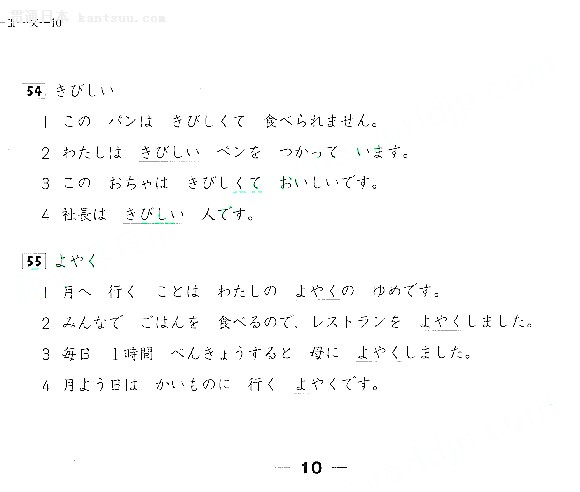 贯通日本 kantsuu.com
54 きびしい
1 この パンは きびしくて 食べられません。
2 わたしは きびしい ペンを つかって います。
3 この おちゃは きびしくて おいしいです。
4 社長は きびしい 人です。
55 よやく
1 月へ 行く ことは わたしの よやくの ゆめです。
2 みんなで ごはんを 食べるので、レストランを よやくしました。
3 毎日 1時間 べんきょうすると 母に よやくしました。
4 月よう日は かいものに 行く よやくです。
— 10 —